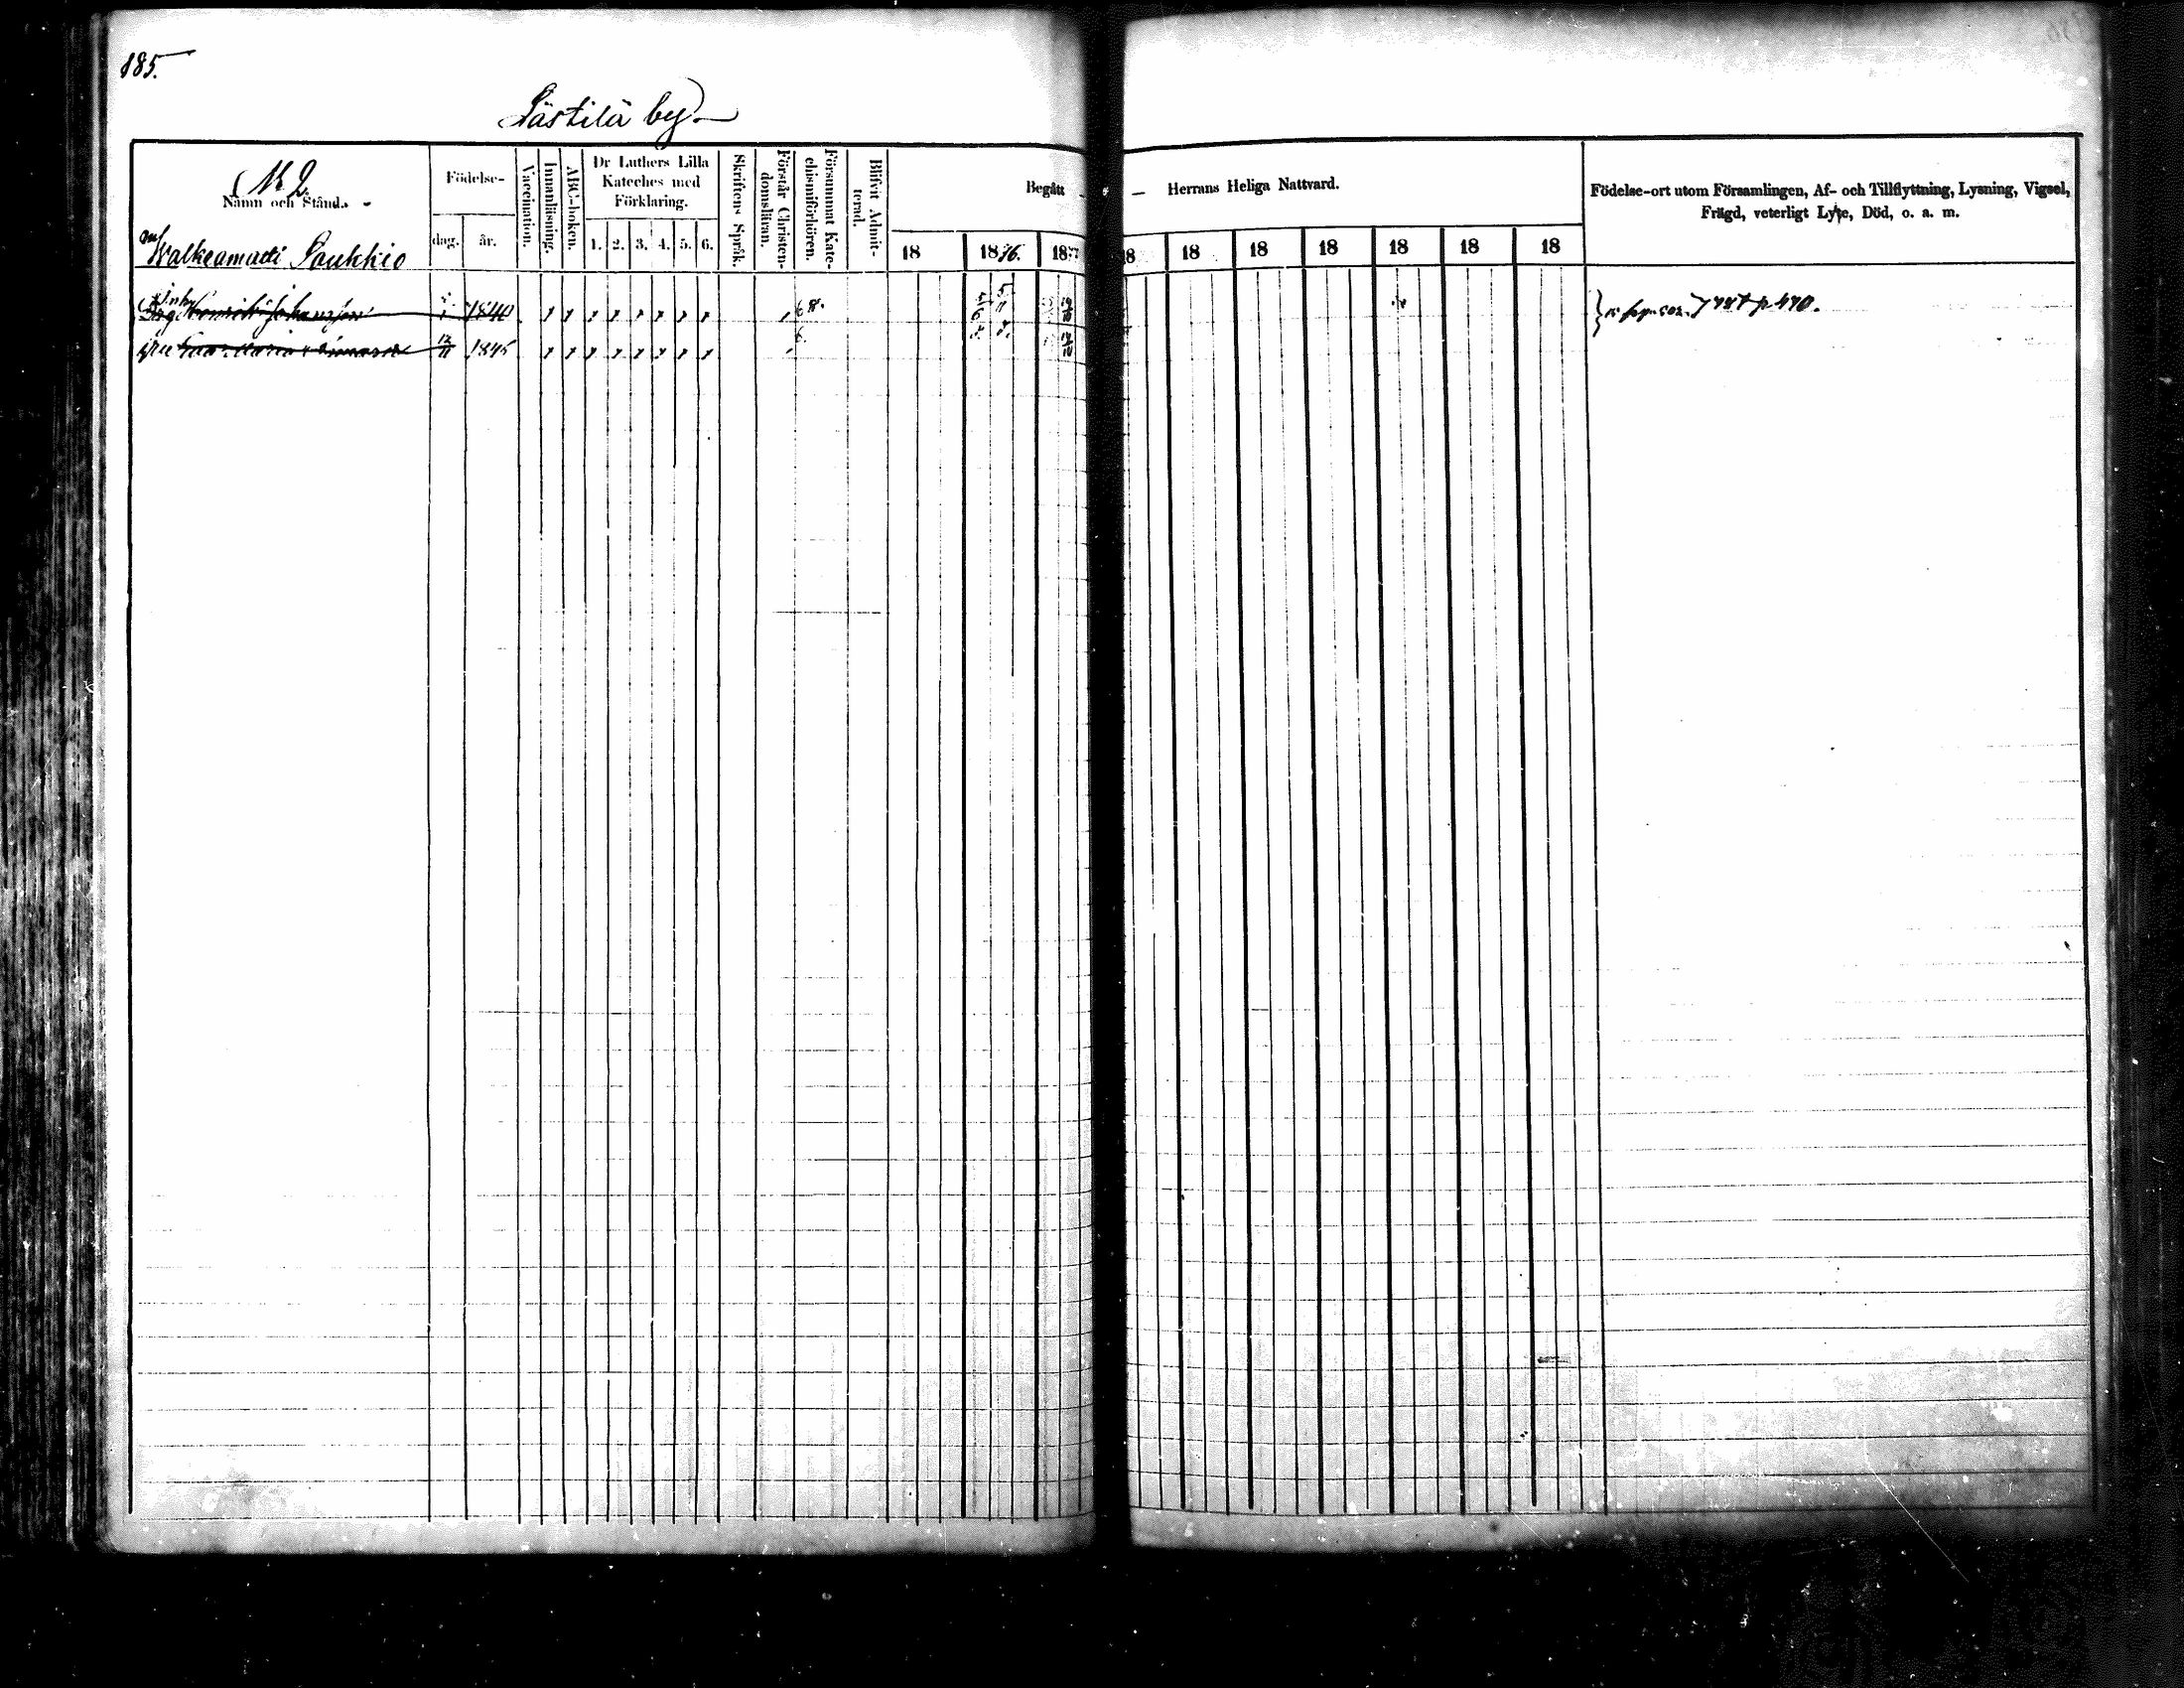 185.
Lästilä by
N 2.
Namn och Stånd.
Walkeamatti Paukkio
Födelse-
dag.
år.
Vaccination.
Innanläsning.
ABC-boken.
Dr Luthers Lilla
Kateches med
Förklaring.
1. 2. 3. 4. 5. 6.
Skriftens Språk.
Förstår Christen-
domsläran.
Försummat Kate-
chismiförhören.
Blifvit Admit-
terad.
Begått — Herrans Heliga Nattvard.
18 1876. 1877 18 18 18 18 18 18 18
Födelse-ort utom Församlingen, Af- och Tillflyttning, Lysning, Vigsel,
Frägd, veterligt Lyte, Död, o. a. m.
Inh
Henrik Johansson 1840 68. p 470.
Maria 12/11 1845 6.